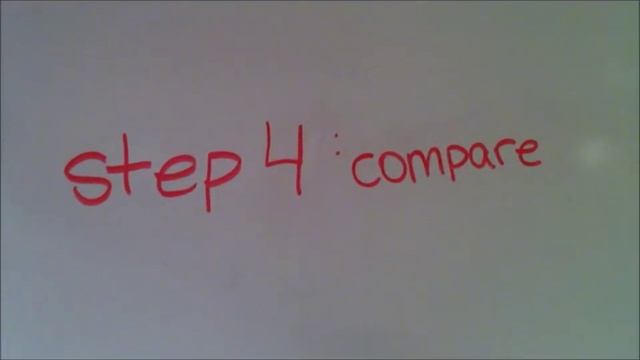 step 4 : compare